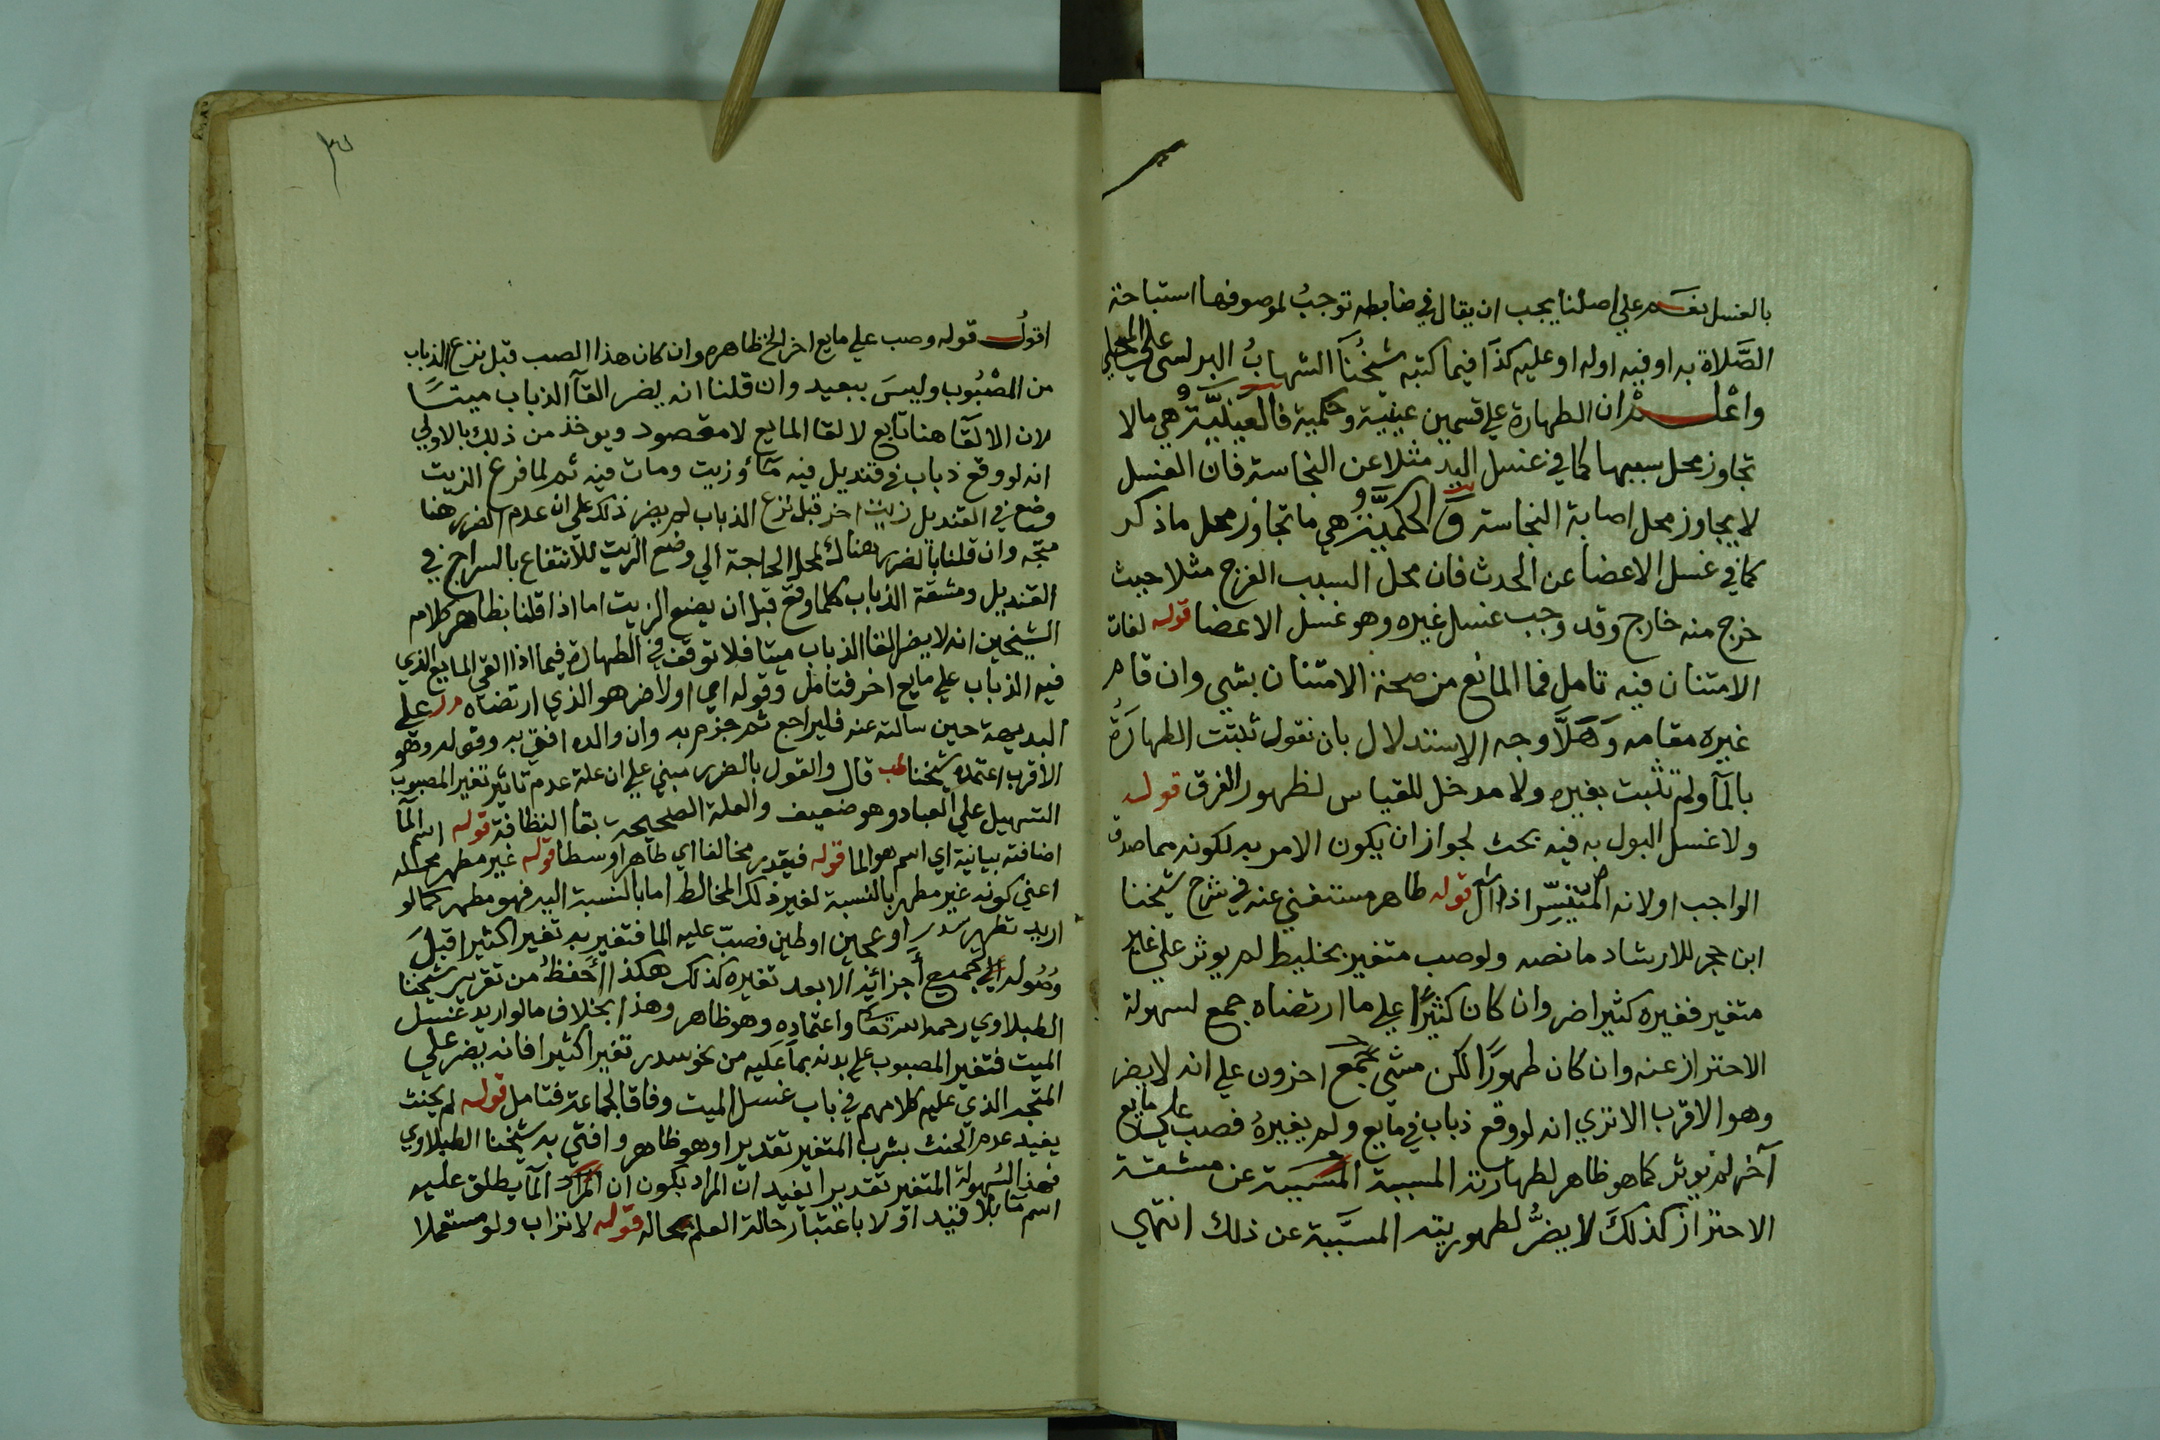 بالغسل نعم علي اصلنا يجب ان يقال في ضابطه توجب لموصوفها استباحة
الصَّلاة به او فيه اوله او عليه كذا فيما كتبه شيخُنا الشهابُ البرلسي علي المحلي
واعْلمْ ان الطهارة علي قسمين عينيّة وحكمية فالعَينيَّةُ هي مالا
تجاوز محل سببها كما في غسل اليد مثلا عن النجاسة فان الغسل
لا يجاوز محل اصابة النجاسة وَالحكميَّةُ هي ما تجاوز محل ما ذكر
كما في غسل الاعضا عن الحدث فان محل السبب الفرج مثلا حيث
خرج منه خارج وقد وجب غسل غيره وهو غسل الاعضا قوله لفات
الامتنان فيه تامل فما المانع من صحة الامتنان بشي وان قام
غيره مقامه وَهَلَّا وجه الاستدلال بان نقول ثبتت الطهارَةُ
بالمآ ولم تثبت بغيره ولا مدخل للقياس لظهور الفرق قوله
ولا غسل البول به فيه بحث لجواز ان يكون الامر به لكونه مما صدق
الواجب او لانه المتيسّر اذ ذاك قوله طاهر مستغني عنه في شرح شيخنا
ابن حجر للارشاد ما نصه ولو صب متغير بخليط لم يوثر علي غير
متغير فغيره كثيرا ضر وان كان كثيرًا علي ما ارتضاه جمع لسهولة
الاحتراز عنه وان كان طهورًا لكن مشي جمع اخرون علي انه لا يضر
وهو الاقرب الا تري انه لو وقع ذباب في مايع ولم يغيرهُ فصب علي مايع
آخر لم يوثر كما هو ظاهر لطهارته المسببة عن مشقة
الاحتراز كذلكَ لا يضرُّ لطهوريته المسبَّبة عن ذلك انتهي
اقولُ قوله وصب علي مايع اخر الخ ظاهره وان كان هذا الصب قبل نزع الذباب
من المصْبُوب وليسَ ببعيد وان قلنا انه يضر القآ الذباب ميتًا
لان الالقَآ هنا تابع لالقا المايع لا مقصود ويوخذ من ذلك بالاولي
انه لو وقع ذباب في قنديل فيه مَآ وزيت ومات فيه ثم لما فرغ الزيت
وضع في القنديل زيت اخر قبل نزع الذباب لم يضر ذلك علي ان عدم الضرر هنا
متجه وان قلنا بالضرر هناك لمحل الحاجة الي وضع الزيت للانتفاع بالسراج في
القنديل ومشقة الذباب كلما وقع قبل ان يضع الزيت اما اذا قلنا بظاهر كلام
الشيخين انه لا يضر القا الذباب ميتا فلا توقف في الطهارة فيما اذا القي المايع الذي
فيه الذباب علي مايع اخر فتامل وقوله اولا ضر هو الذي ارتضاه م ر علي
البديهة حين سالته عنه فليراجع ثم جزم به وان والده افتي به وقوله وهو
الاقرب اعتمده شيخنا طب قال والقول بالضرر مبني علي ان علة عدم تاثير تغير المصبوب
التسهيل علي العباد وهو ضعيف والعلة الصحيحة بقا النظافة قوله اسم المآ
اضافته بيانية اي اسم هو الما قوله فيقدر مخالفا اي طاهرا وسطا قوله غير مطهر محله
اعني كونه غير مطهر بالنسبة لغير ذلك المخالط اما بالنسبة اليه فهو مطهر كما لو
اريد تطهير سدر او عجين او طين فصبّ عليه الما فتغير به تغيرا كثيرا قبلَ
وصُوله الي جميع أجزائه الا بعد تغيره كذلك هكذا احفظُ من تقرير شيخنا
الطبلاوي رحمه الله تعَالى واعتماده وهو ظاهر وهذا بخلاف ما لو اريد غسل
الميت فتغير المصبوب علي بدنه بما عَليه من نحو سدر تغيرا كثيرا فانه يضر علي
المتجه الذي عليه كلامهم في باب غسل الميت وفاقا لجماعة فتامل قوله لم يحنث
يفيد عدم الحنث بشرب المتغير تقديرا وهو ظاهر وافتي به شيخنا الطبلاوي
فهذا لسُهولة المتغير تقديرا يفيد ان المراد بكون ان المراد المآ يطلق عليه
اسم مآ بلا قيد اولا باعتبار حالة العلم بحاله قوله لا تراب ولو مستعملا